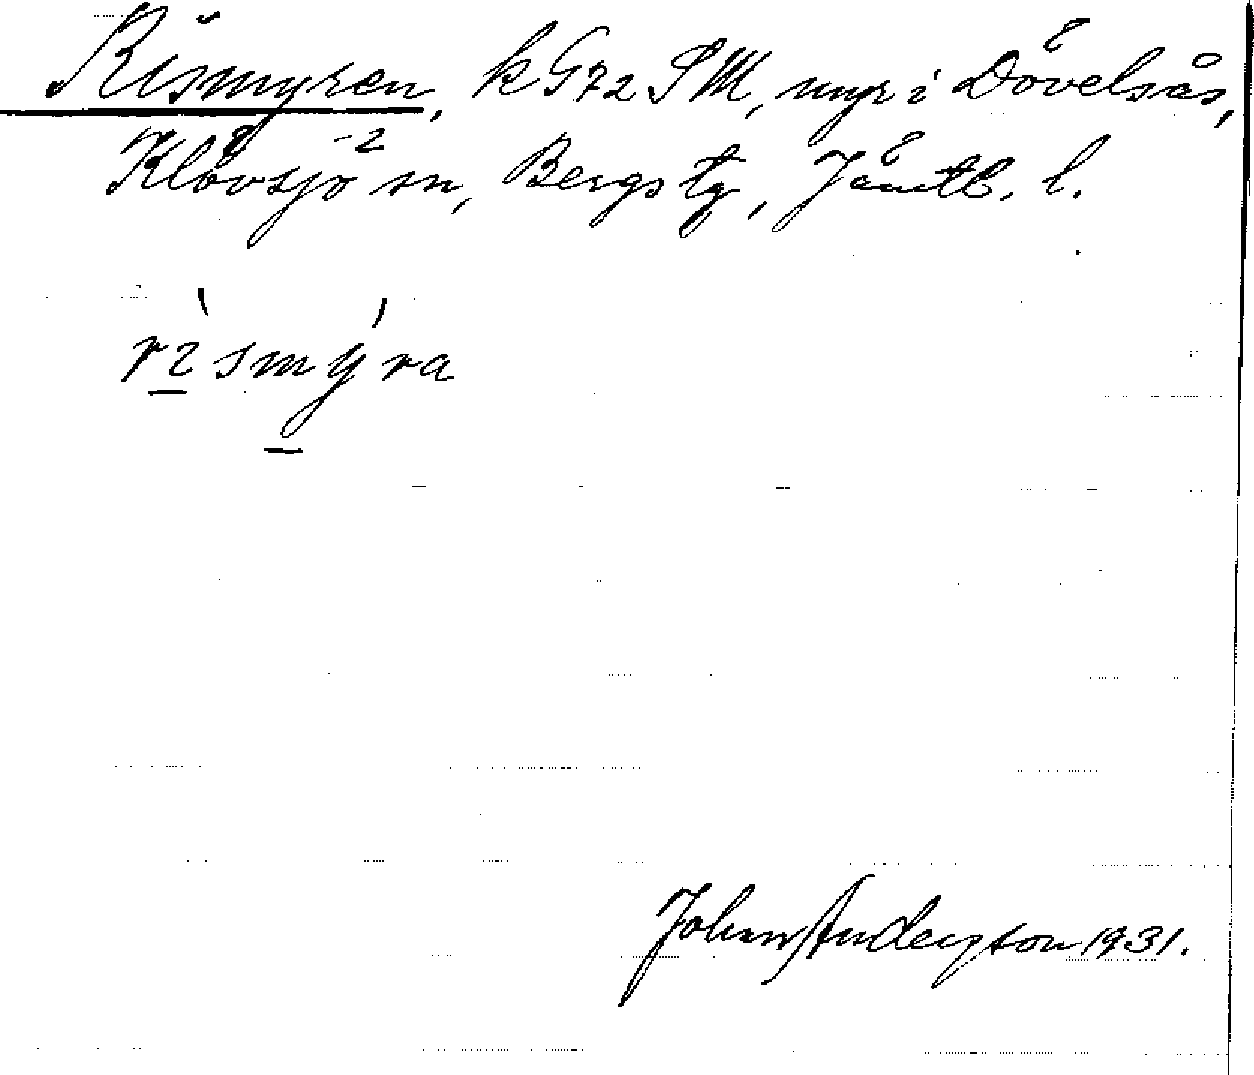 Rismyren, k G 72 SM, myr i Dövelsås,
Klövsjö sn, Bergs tg, Jämtl. l.
rismyra
Johan Anderson 1931.